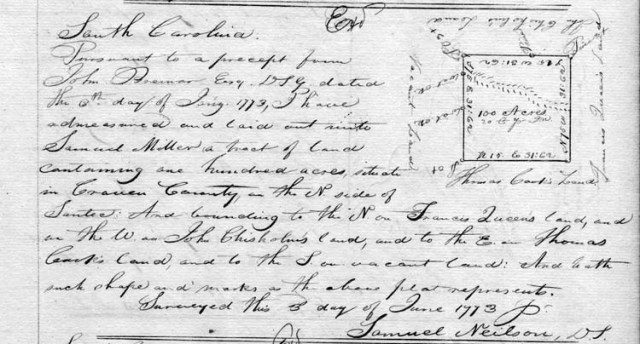 South Carolina. Exd
Pursuant to a precept from
John Bremar Esq. D S G, dated
the 5th day of Jany. 1773, I have
admeasured and laid out unto
Samuel Miller a tract of land
containing one hundred acres, situate
in Craven County, on the N side of
Santee: And bounding to the N on Francis Queen's land, and
on the W. on John Chisholm's land, and to the E. on Thomas
Cook's land, and to the S on vacant land: And hath
such shape and marks as the above plat represents.
Surveyed this 3 day of June 1773 pr
Samuel Neilson, D S.
John Chisholm's Land
Francis Queen's Land
Vacant Land
100 Acres
Thomas Cook's Land